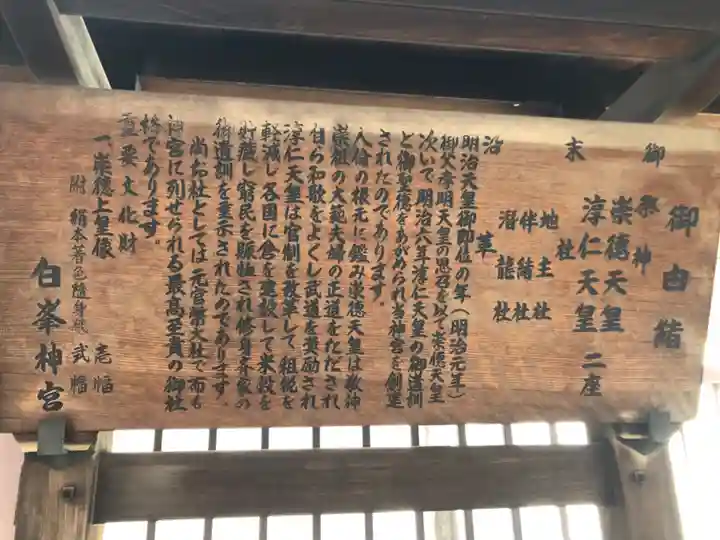 御由緒
御祭神
崇徳天皇
淳仁天皇 二座
末社
地主社
伴緒社
潜龍社
沿革
明治天皇御即位の年(明治元年)
御父孝明天皇の思召を以て崇徳天皇
次いで、明治六年淳仁天皇の御遺訓
と御聖徳をあがめられ当神宮を創建
されたのであります。
人倫の根元に鑑み崇徳天皇は敬神
崇祖の大範夫婦の正道をたたされ
自ら和歌をよくし武道を奨励され
淳仁天皇は官制を改革して租税を
軽減し各国に倉を建設して米穀を
貯蔵し窮民を賑恤され修身斉家の
御遺訓を垂示されたのであります。
尚お社としては元官幣大社で而も
神宮に列せられる最高至貴の御社
格であります。
重要文化財
一、崇徳上皇像 壱幅
附 絹本着色随身像 弐幅
白峯神宮